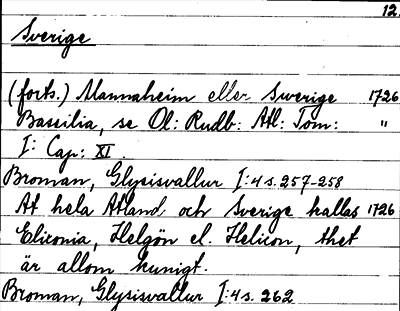 12.
Sverige
(forts.) Mannaheim eller Swerige 1726
Bassilia, se Ol: Rudb: Atl: Tom: "
I: Cap: XI
Broman, Glysisvallur I:4 s. 257-258
At hela Atland och Sverige kallas 1726
Eliconia, Helgön el. Helicon, thet
är allom kunigt.
Broman, Glysisvallur I:4 s. 262